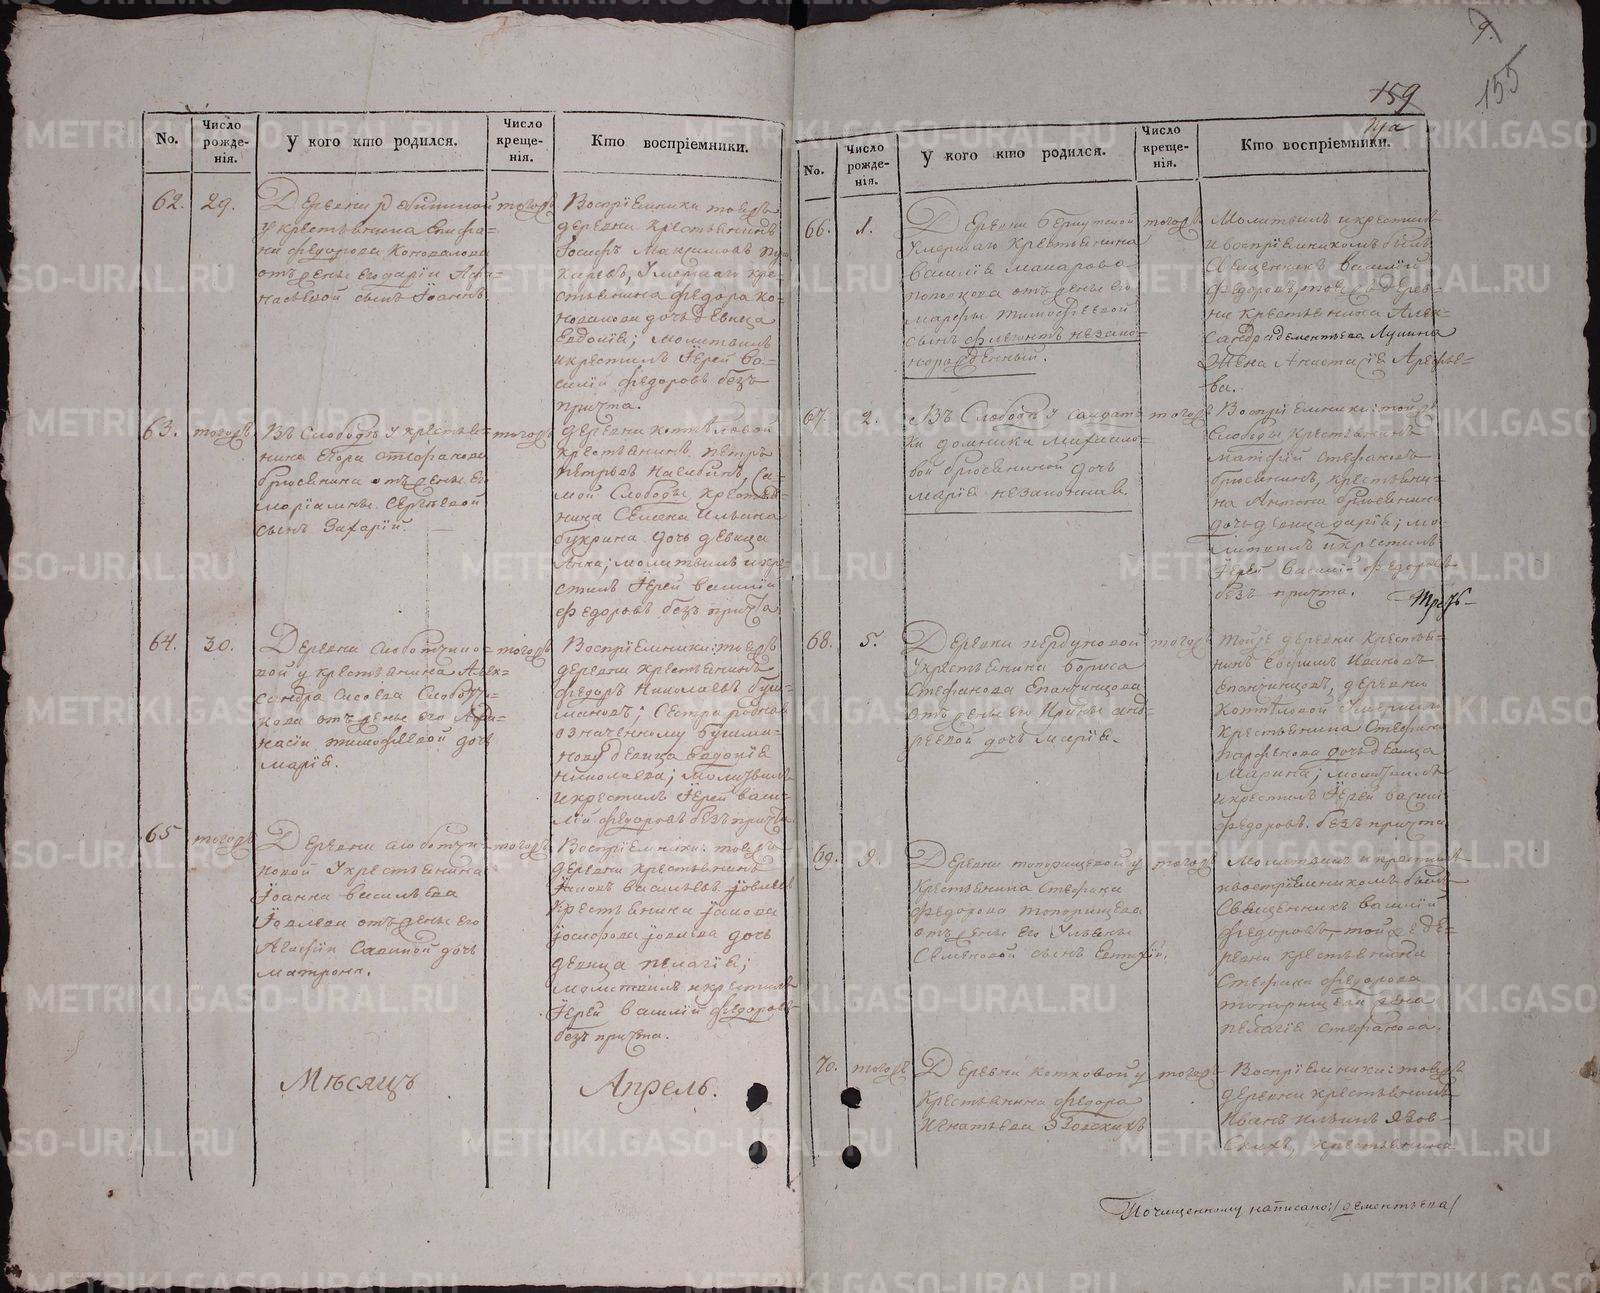 9.
155
159
No.
Число рожденія.
У кого кто родился.
Число крещенія.
Кто воспріемники.
62.
29.
Деревни
у крестьянина Епифа-
на Федорова Коновалова
отъ жены его Дарьи Афа-
насьевой сынъ Іоаннъ
тогожъ
Воспріемники: тоежъ
деревни крестьянинъ
Іосифъ Максимовъ
умершаго кре-
стьянина Федора Ко-
новалова дочь девица
Евдокія; молитвилъ
и крестилъ Іерей Ва-
силій Федоровъ безъ
причта.
63.
тогожъ
Въ Слободе у крестья-
нина Егора Стефанова
Брюсянина отъ жены его
Маріамны Сергеевой
сынъ Захарій.
тогожъ
деревни Коптеловой
крестьянинъ Петръ
Петровъ са-
мой Слободы крестья-
нина Семена Ильина
Букрина дочь девица
Анна; молитвилъ и кре-
стилъ Іерей Василій
Федоровъ безъ причта
64.
30.
Деревни Слободчико-
вой у крестьянина Алек-
сандра Сысоева Слободчи-
кова отъ жены его Афа-
насіи Тимофеевой дочь
Марія.
тогожъ
Воспріемники: тоежъ
деревни крестьянинъ
Федоръ Николаевъ Буш-
мановъ; сестра родная
означенному Бушма-
нову девица Евдокія
Николаева; молитвилъ
и крестилъ Іерей Васи-
лій Федоровъ безъ причта
65
тогожъ
Деревни Слободчи-
ковой у крестьянина
Іоанна Васильева
Іовлева отъ жены его
Агафіи Савиной дочь
Матрона.
тогожъ
Воспріемники: тоежъ
деревни крестьянинъ
Іаковъ Васильевъ Іовлевъ
крестьянина Іакова
Іосифова Іовлева дочь
девица Пелагія;
молитвилъ и крестилъ
Іерей Василій Федоровъ
безъ причта.
Мѣсяцъ
Апрель.
No.
Число рожденія.
У кого кто родился.
Число крещенія.
Кто воспріемники.
66.
1.
Деревни
умершаго крестьянина
Василія Макарова
Попкова отъ жены его
Марфы Тимофеевой
сынъ незако-
норожденный.
тогожъ
Молитвилъ и крестилъ
и воспріемникомъ былъ
Священникъ Василій
Федоровъ, тоежъ дерев-
ни крестьянина Алек-
сандра Дементьева Лушина
жена Анастасія Арефье-
ва.
67.
2.
Въ Слободе у солдат-
ки Домники Михайло-
вой Брюсяниной дочь
Марія незаконная.
тогожъ
Воспріемники: тойжъ
Слободы крестьянинъ
Матфій Стефановъ
Брюсянинъ, крестьяни-
на Антона Брюсянина
дочь девица Дарія; мо-
литвилъ и крестилъ
Іерей Василій Федоровъ
безъ причта.
68.
5.
Деревни Пердуновой
у крестьянина Бориса
Стефанова Епанчинцова
отъ жены его Ирины Анд-
реевой дочь Марія.
тогожъ
Тойже деревни крестья-
нинъ Ефимъ Ивановъ
Епанчинцовъ, деревни
Коптеловой умершаго
крестьянина Стефана
Парфенова дочь девица
Марина; молитвилъ
и крестилъ Іерей Василій
Федоровъ безъ причта
69.
9.
Деревни Топорищевой у
крестьянина Стефана
Федорова Топорищева
отъ жены его Ульяны
Семеновой сынъ Евтихій.
тогожъ
Молитвилъ и крестилъ
и воспріемникомъ былъ
Священникъ Василій
Федоровъ, тойже де-
ревни крестьянина
Стефана Федорова
Топорищева жена
Пелагія Стефанова.
70.
тогожъ
Деревни Котковой у
крестьянина Федора
Игнатьева Язовскихъ
тогожъ
Воспріемники: тоежъ
деревни крестьянинъ
Иванъ Ильинъ Язов-
скихъ, крестьянина
По чищенному написано: /Дементьева/
METRIKI.GASO-URAL.RU